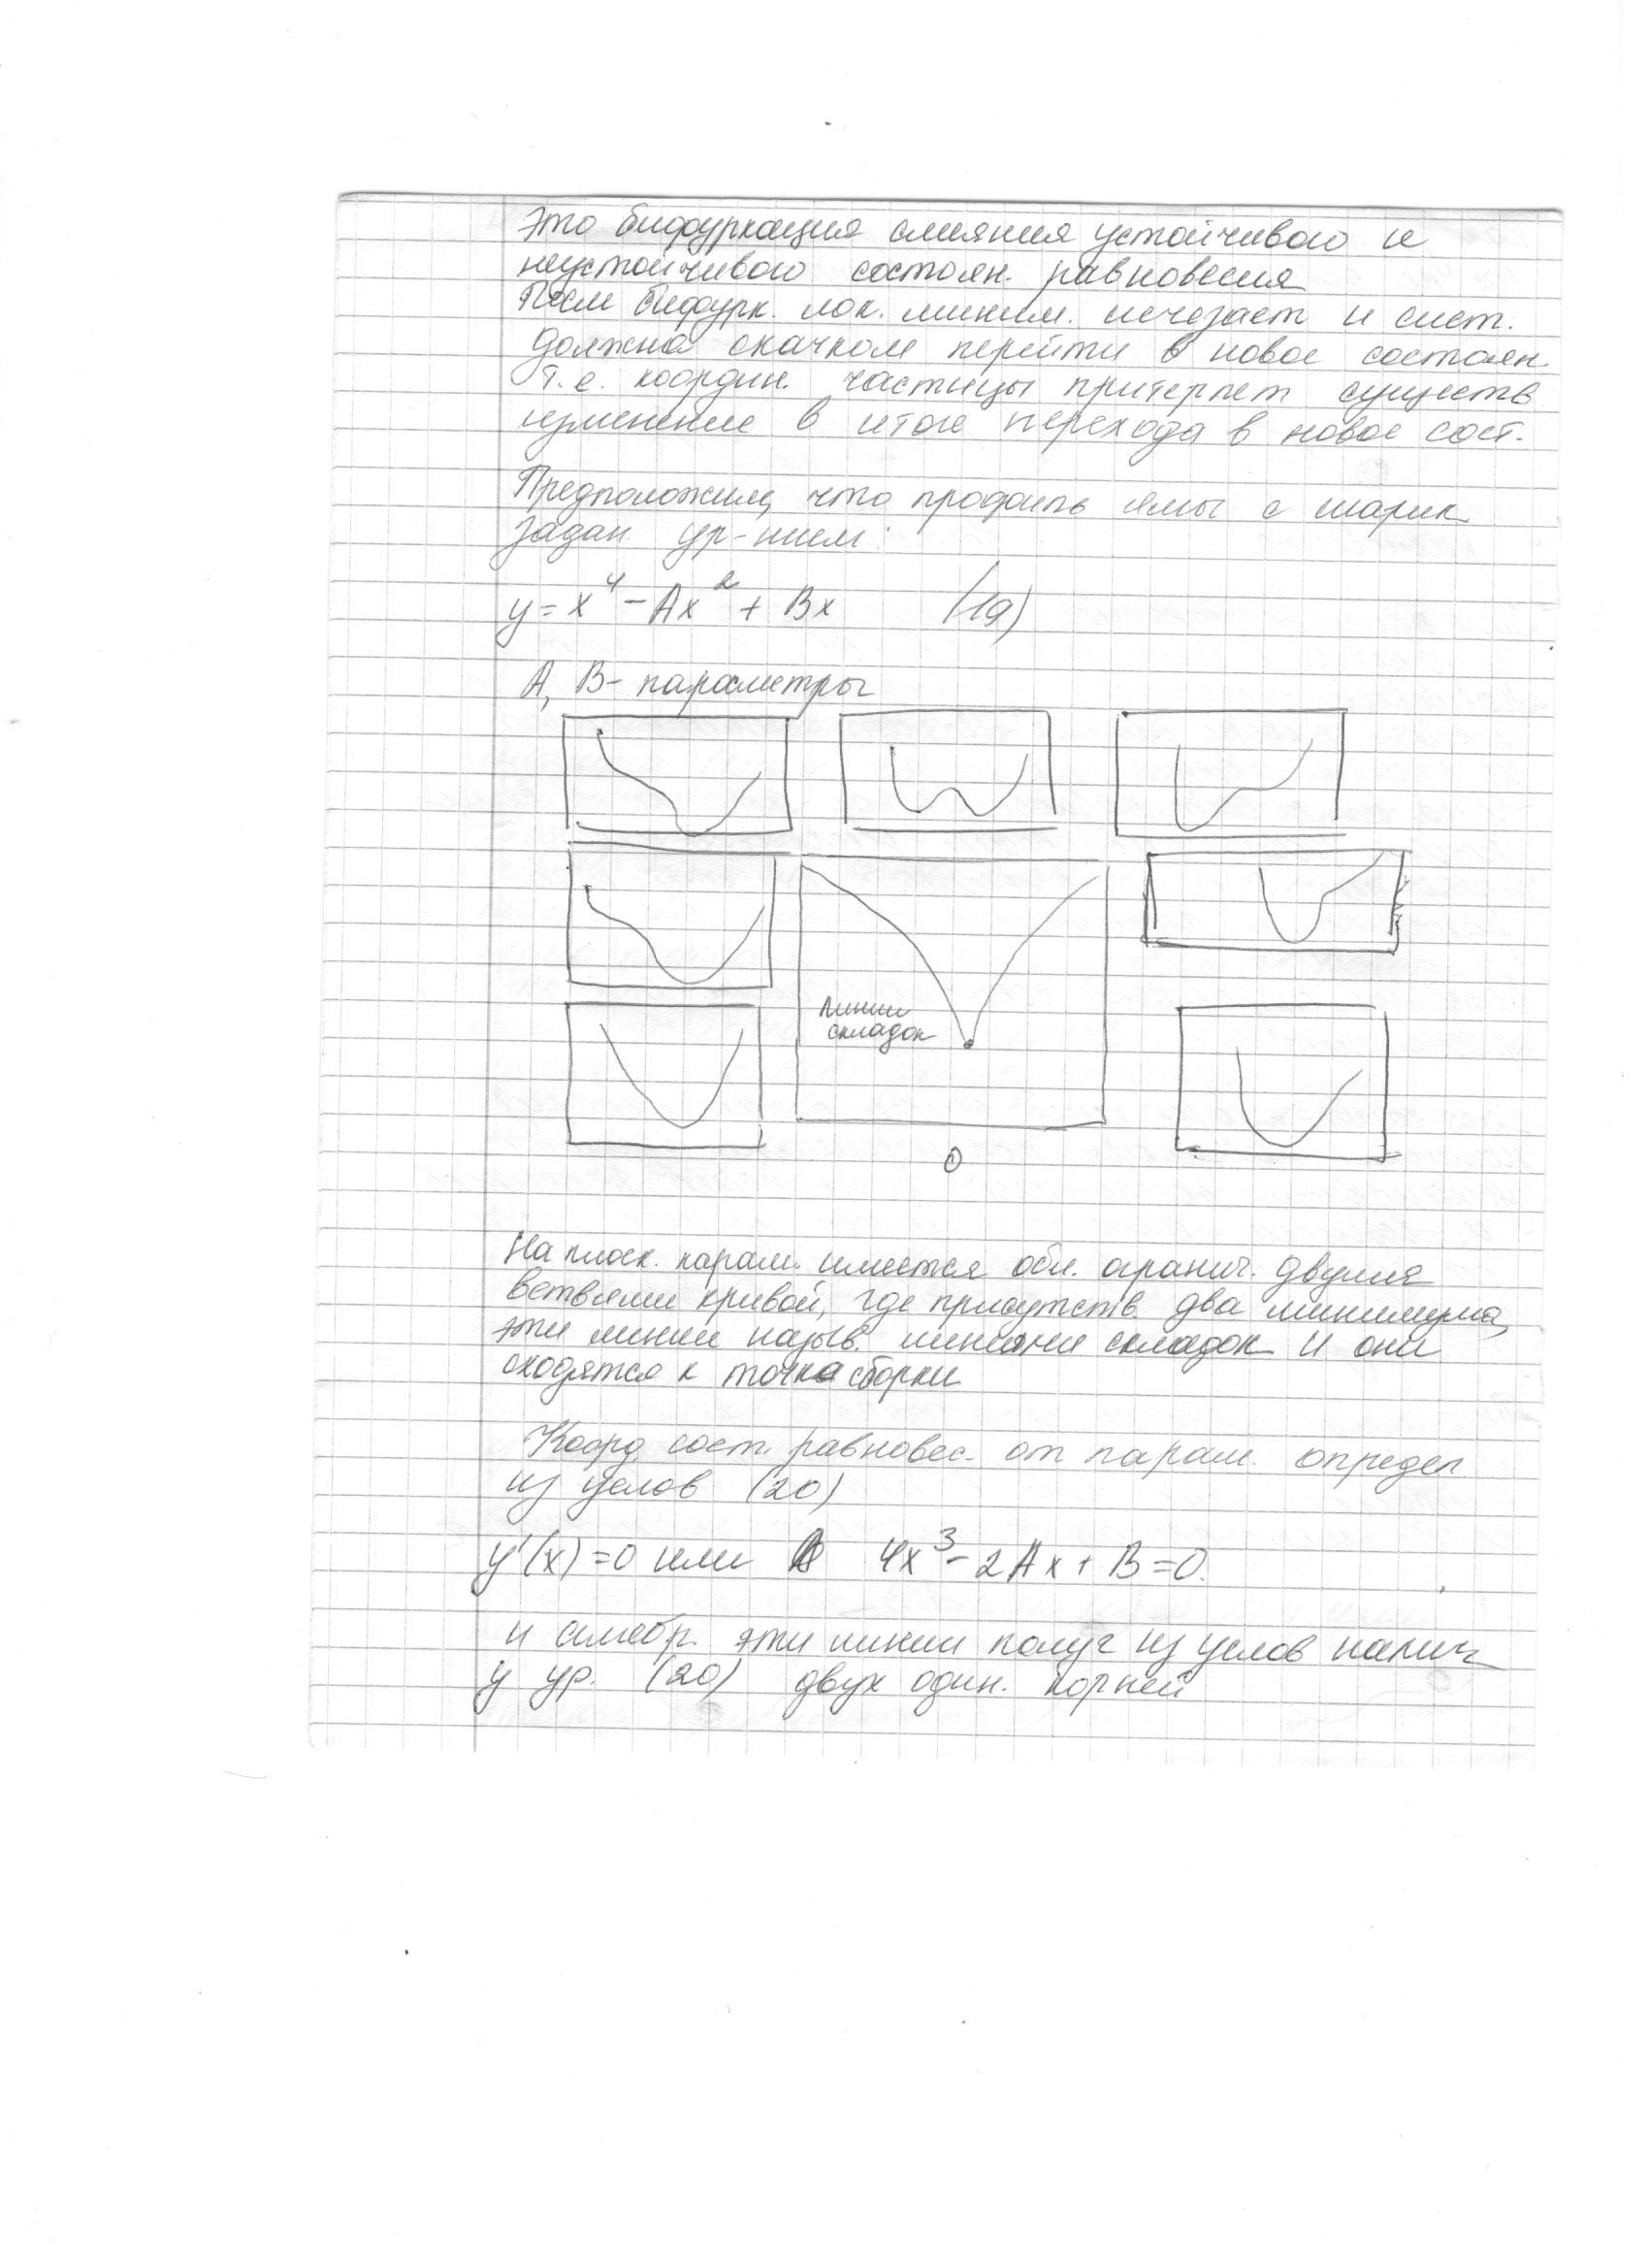 Это бифуркация слияния устойчивого и
неустойчивого состоян. равновесия
После бифурк. лок. миним. исчезает и сист.
должна скачком перейти в новое состоян.
т.е. координ. частицы притерпет существ
изменение в итоге перехода в новое сост.
Предположим, что профиль ямы с шарик
задан ур-нием:
y = x⁴ - Ax² + Bx (19)
A, B - параметры
линии
складок
0
На плоск. парам. имеется обл. огранич. двумя
ветвями кривой, где присутств. два минимума,
эти линии назыв. линиями складок и они
сходятся к точке сборки
Коорд. сост. равновес. от парам. определ
из услов (20)
y'(x) = 0 или 4x³ - 2Ax + B = 0.
и алгебр. эти линии получ из услов налич
у ур. (20) двух один. корней